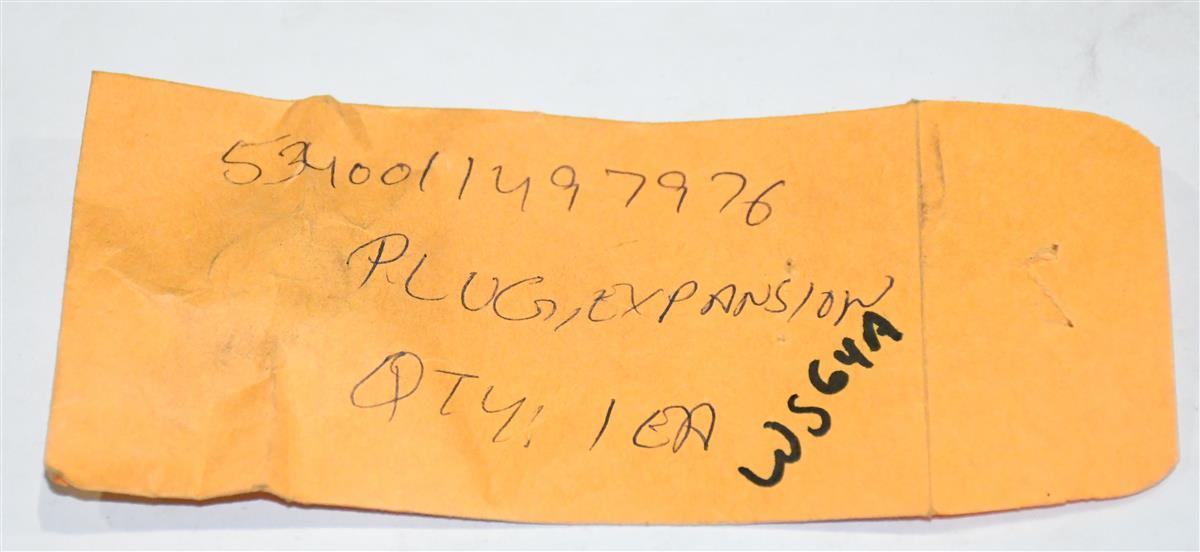 5340011497976
PLUG, EXPANSION
QTY: 1 EA
WS64A